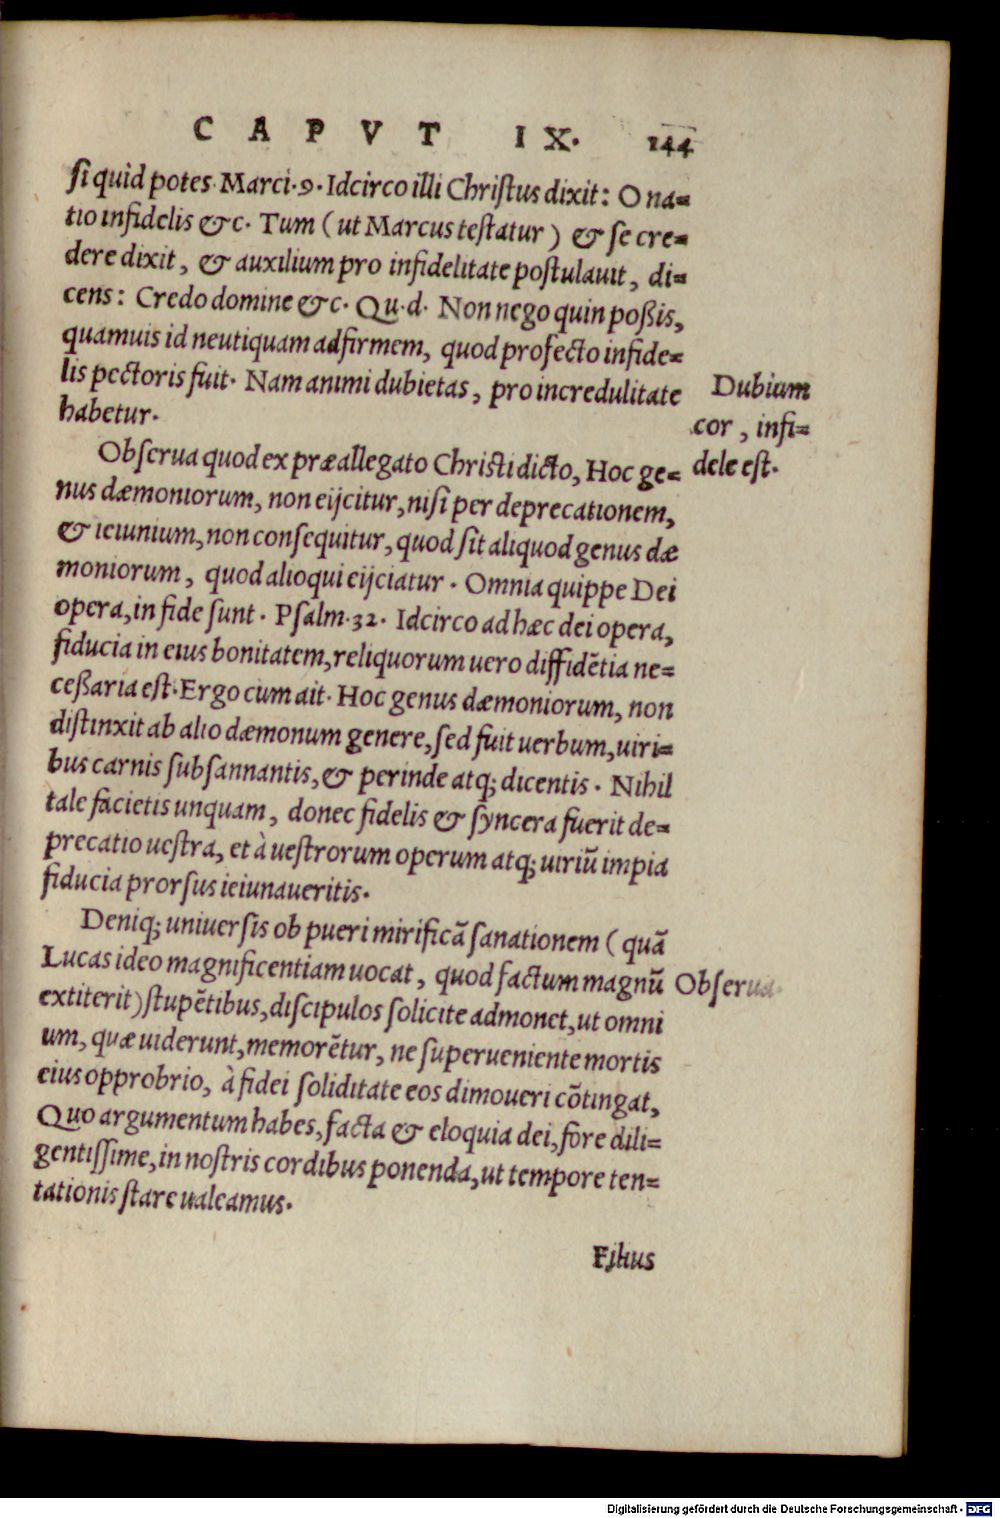 CAPVT IX. 144
si quid potes. Marci.9. Idcirco illi Christus dixit: O na=
tio infidelis &c. Tum (ut Marcus testatur) & se cre=
dere dixit, & auxilium pro infidelitate postulauit, di=
cens: Credo domine &c. Qu.d. Non nego quin poßis,
quamuis id neutiquam adfirmem, quod profecto infide=
lis pectoris fuit. Nam animi dubietas, pro incredulitate
habetur.
Dubium
cor, infi=
dele est.
Obserua quod ex præallegato Christi dicto, Hoc ge=
nus dæmoniorum, non eijcitur, nisi per deprecationem,
& ieiunium, non consequitur, quod sit aliquod genus dæ
moniorum, quod alioqui eijciatur. Omnia quippe Dei
opera, in fide sunt. Psalm.32. Idcirco ad hæc dei opera,
fiducia in eius bonitatem, reliquorum uero diffidẽtia ne=
ceßaria est. Ergo cum ait. Hoc genus dæmoniorum, non
distinxit ab alio dæmonum genere, sed fuit uerbum, uiri=
bus carnis subsannantis, & perinde atq; dicentis. Nihil
tale facietis unquam, donec fidelis & syncera fuerit de=
precatio uestra, et à uestrorum operum atq; uiriũ impia
fiducia prorsus ieiunaueritis.
Deniq; uniuersis ob pueri mirificã sanationem (quã
Lucas ideo magnificentiam uocat, quod factum magnũ
extiterit) stupẽtibus, discipulos solicite admonet, ut omni
um, quæ uiderunt, memorẽtur, ne superueniente mortis
eius opprobrio, à fidei soliditate eos dimoueri cõtingat,
Quo argumentum habes, facta & eloquia dei, fore dili=
gentissime, in nostris cordibus ponenda, ut tempore ten=
tationis stare ualeamus.
Obserua.
Filius
Digitalisierung gefördert durch die Deutsche Forschungsgemeinschaft - DFG